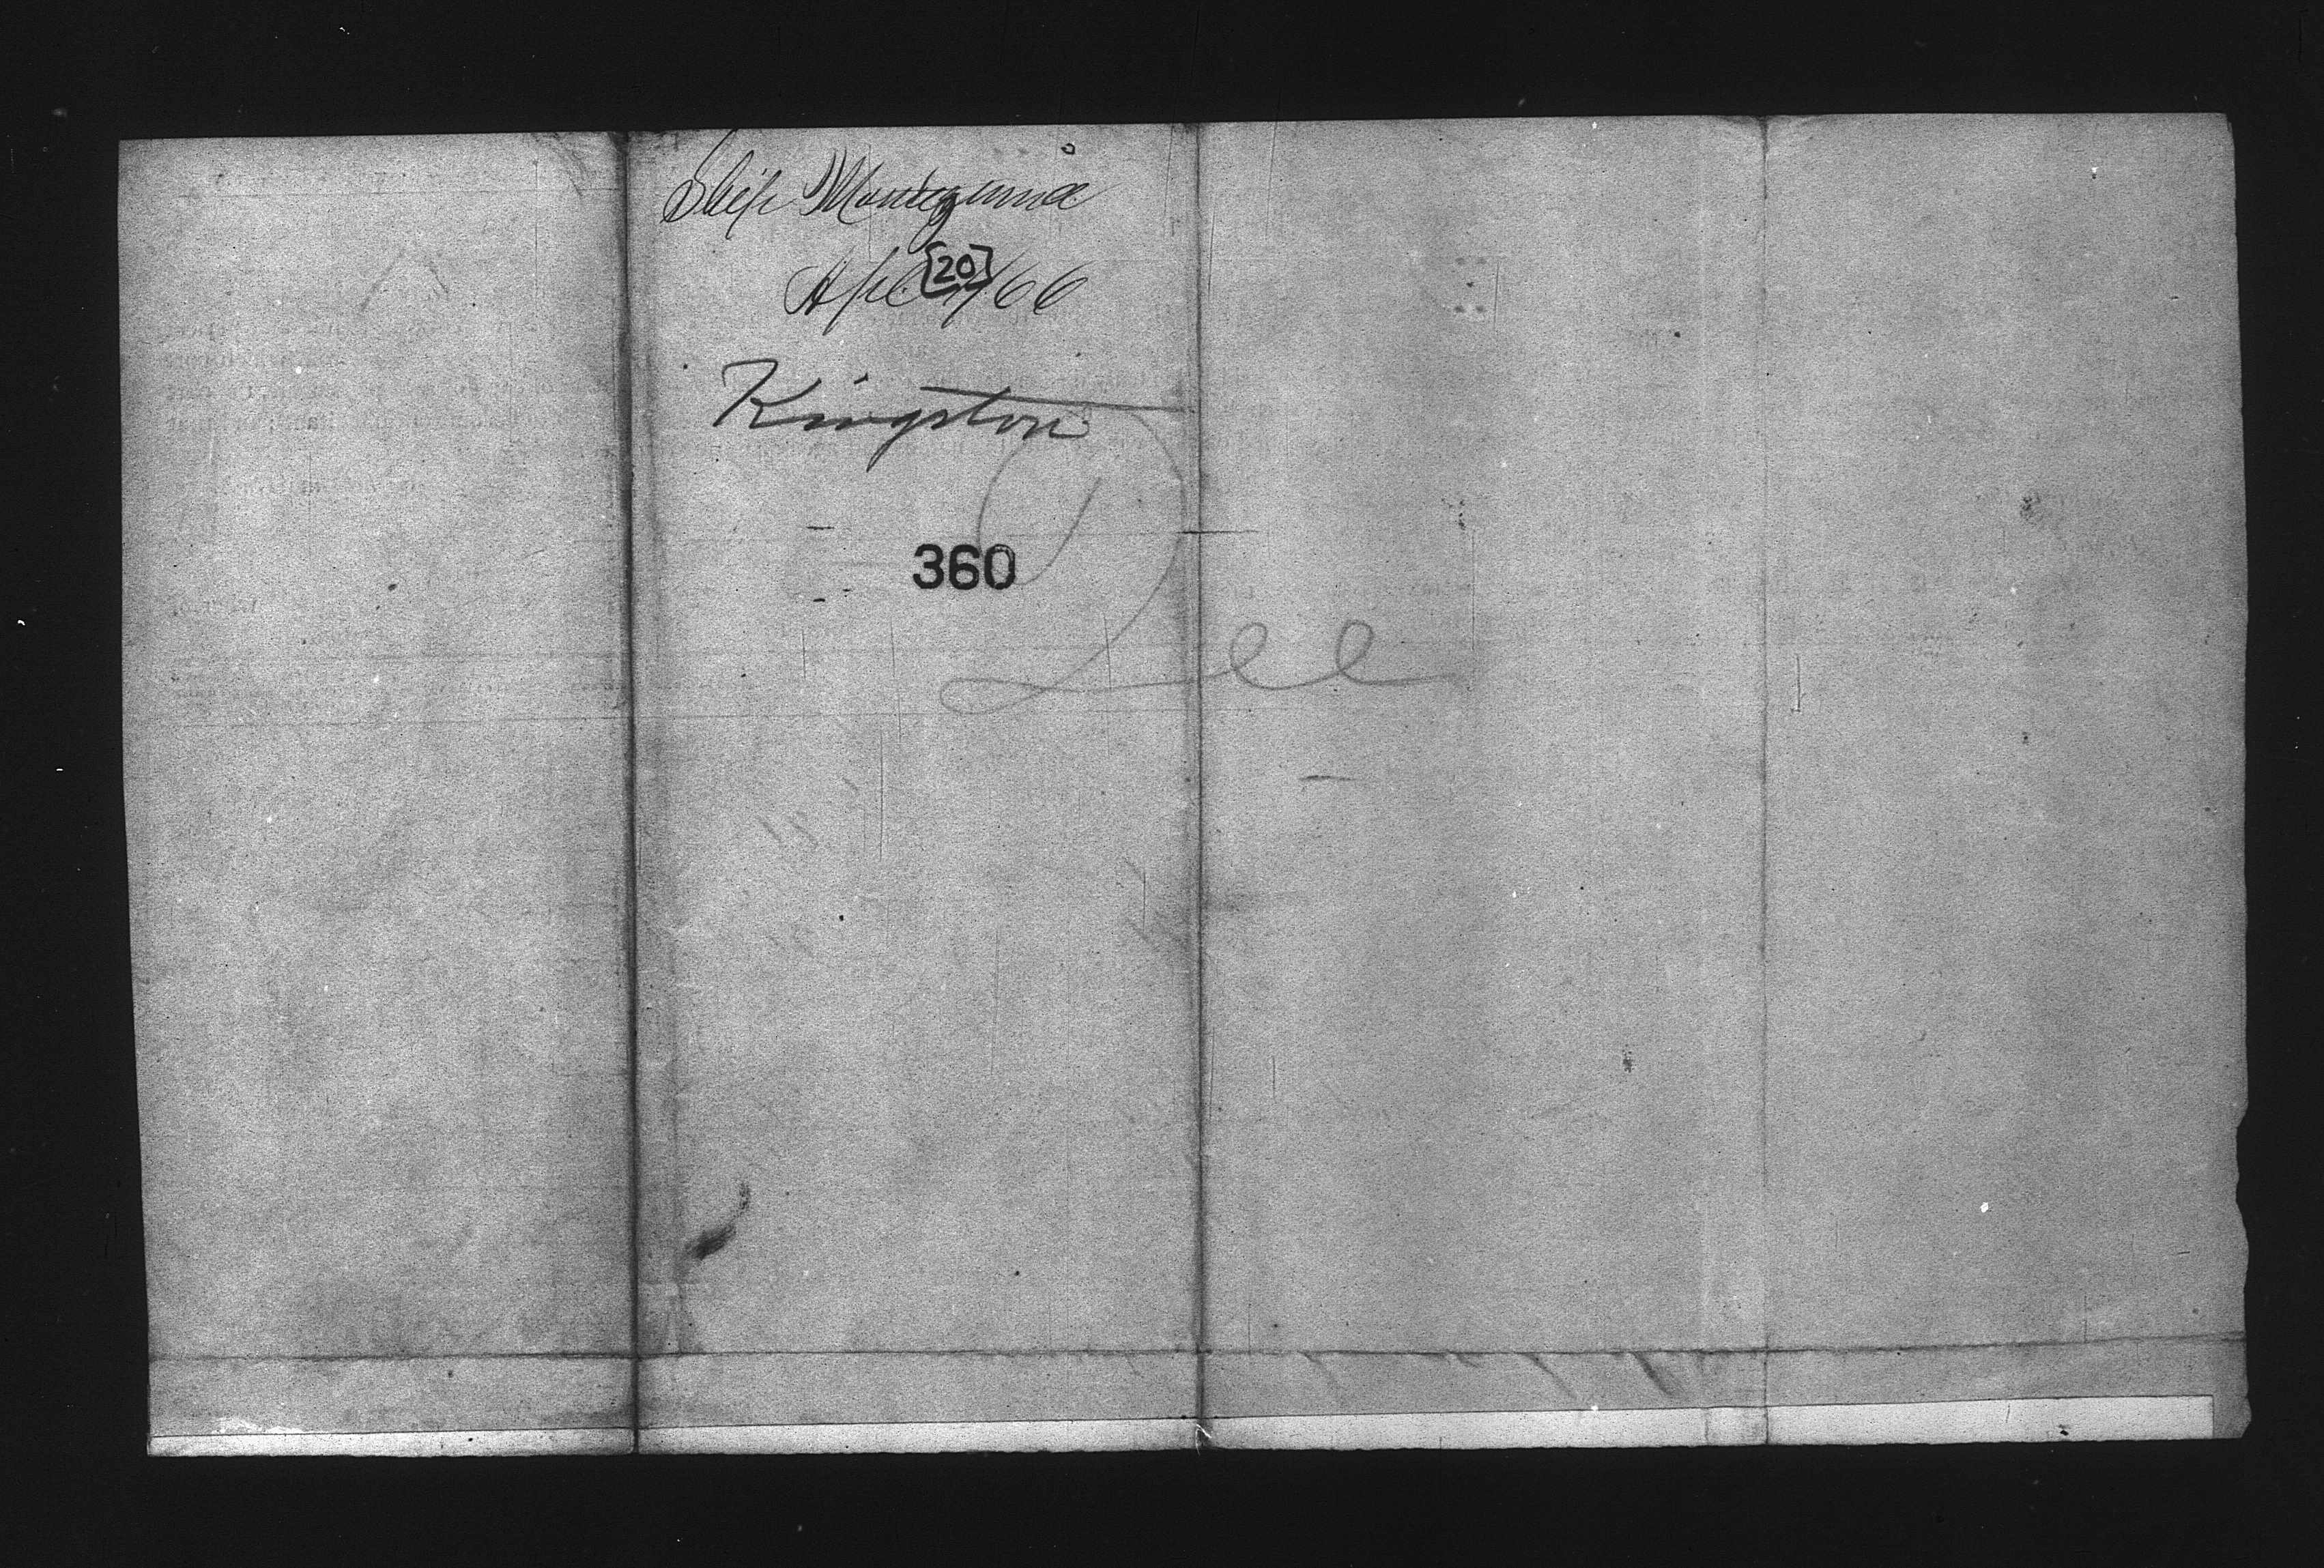 Ship Montezuma
[20]
Apl /66
Kingston
360
Dee